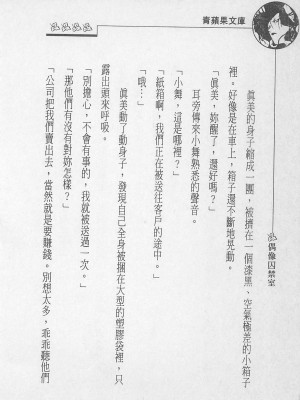 青蘋果文庫
偶像囚禁室
真美的身子縮成一團，被擠在一個漆黑、空氣極差的小箱子
裡。好像是在車上，箱子還不斷地晃動。
「真美，妳醒了，還好嗎？」
耳旁傳來小舞熟悉的聲音。
「小舞，這是哪裡？」
「紙箱啊，我們正在被送往客戶的途中。」
「哦…」
真美動了動身子，發現自己全身被捆在大型的塑膠袋裡，只
露出頭來呼吸。
「別擔心，不會有事的，我就被送過一次。」
「那他們有沒有對妳怎樣？」
「公司把我們賣出去，當然就是要賺錢。別想太多，乖乖聽他們